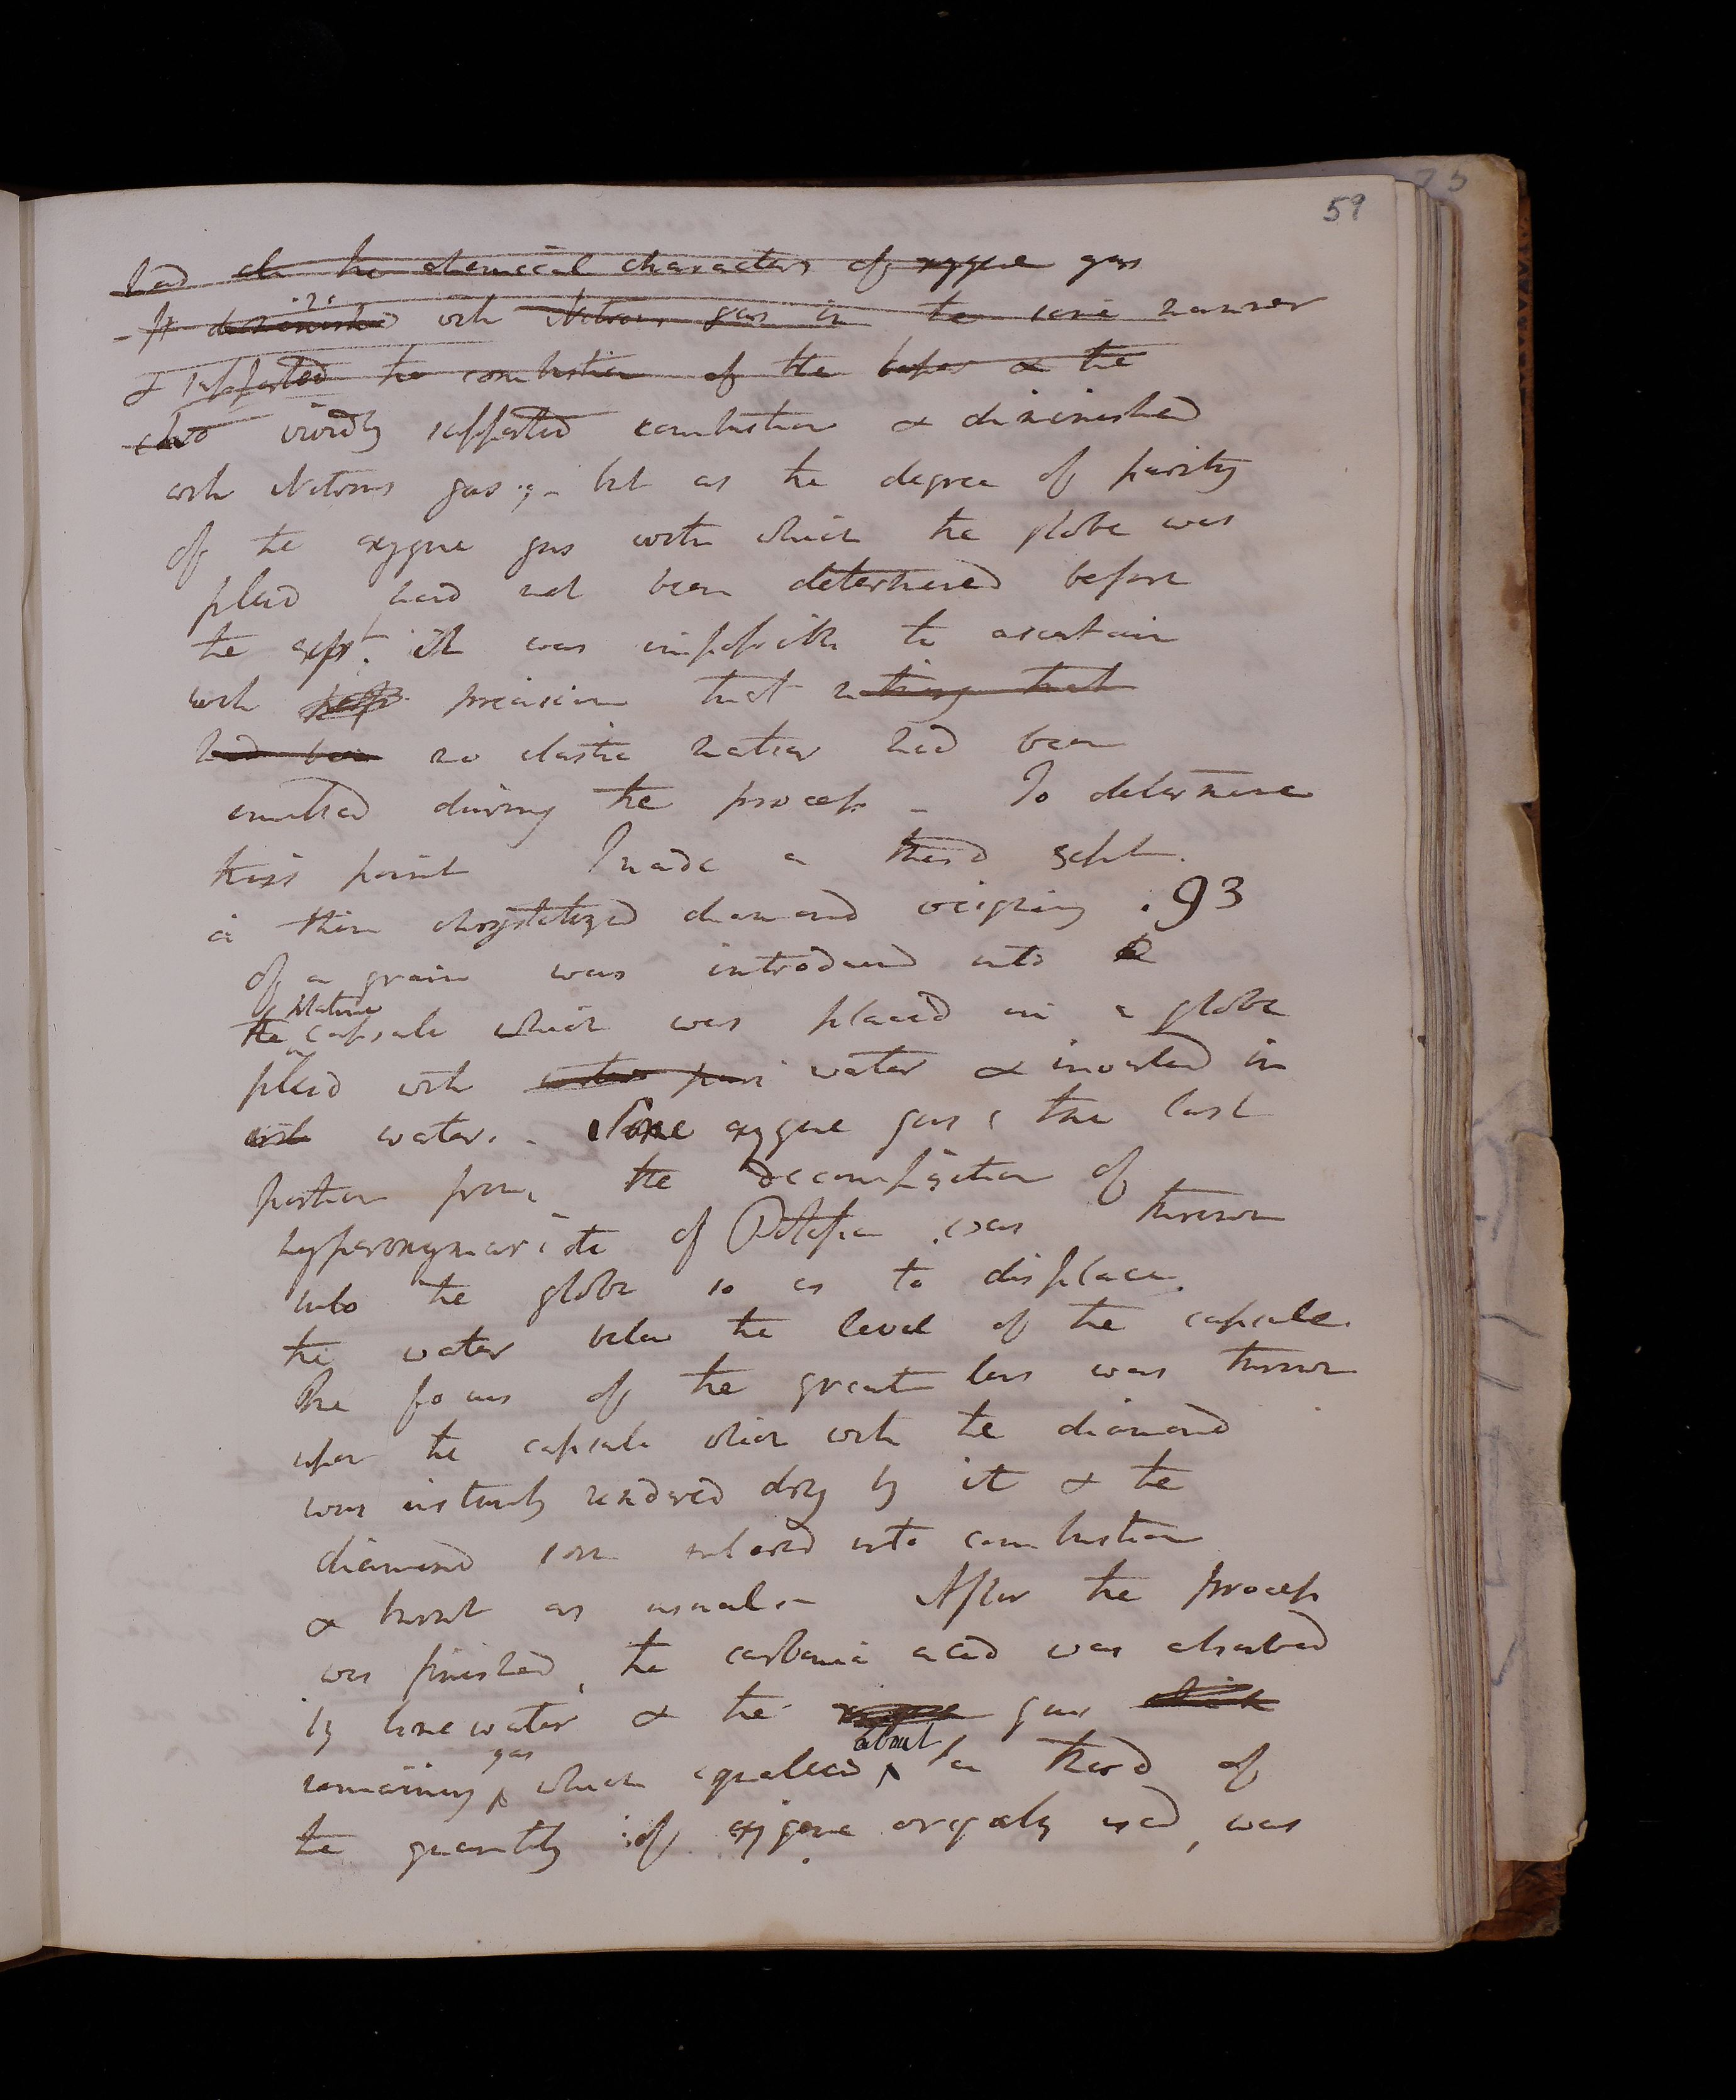 59
had all the chemical characters of oxygene gas
- It diminished with Nitrous gas in the same manner
& supported the combustion of the taper & the
also vividly supported combustion & diminished
with Nitrous gas; - but as the degree of purity
of the oxygene gas with which the globe was
filled had not been determined before
the expt. it was impossible to ascertain
with precision that nothing that
had been no elastic matter had been
emitted during the process - To determine
this point I made a third expt.
a thin chrystalized diamond weighing .93
of a grain was introduced into a
the Platina capsule which was placed in a globe
filled with water & inverted in
with water. - Some oxygene gas, the last
portion from the decomposition of
hyperoxymuriate of Potassa was thrown
into the globe so as to displace
the water below the level of the capsule.
The focus of the great lens was thrown
upon the capsule which with the diamond
was instantly rendered dry by it & the
diamond soon entered into combustion
& burnt as usual. - After the process
was finished, the carbonic acid was absorbed
by lime water & the gas which
remaining gas which equalled about 1/a third of
the quantity of oxygene originally used, was